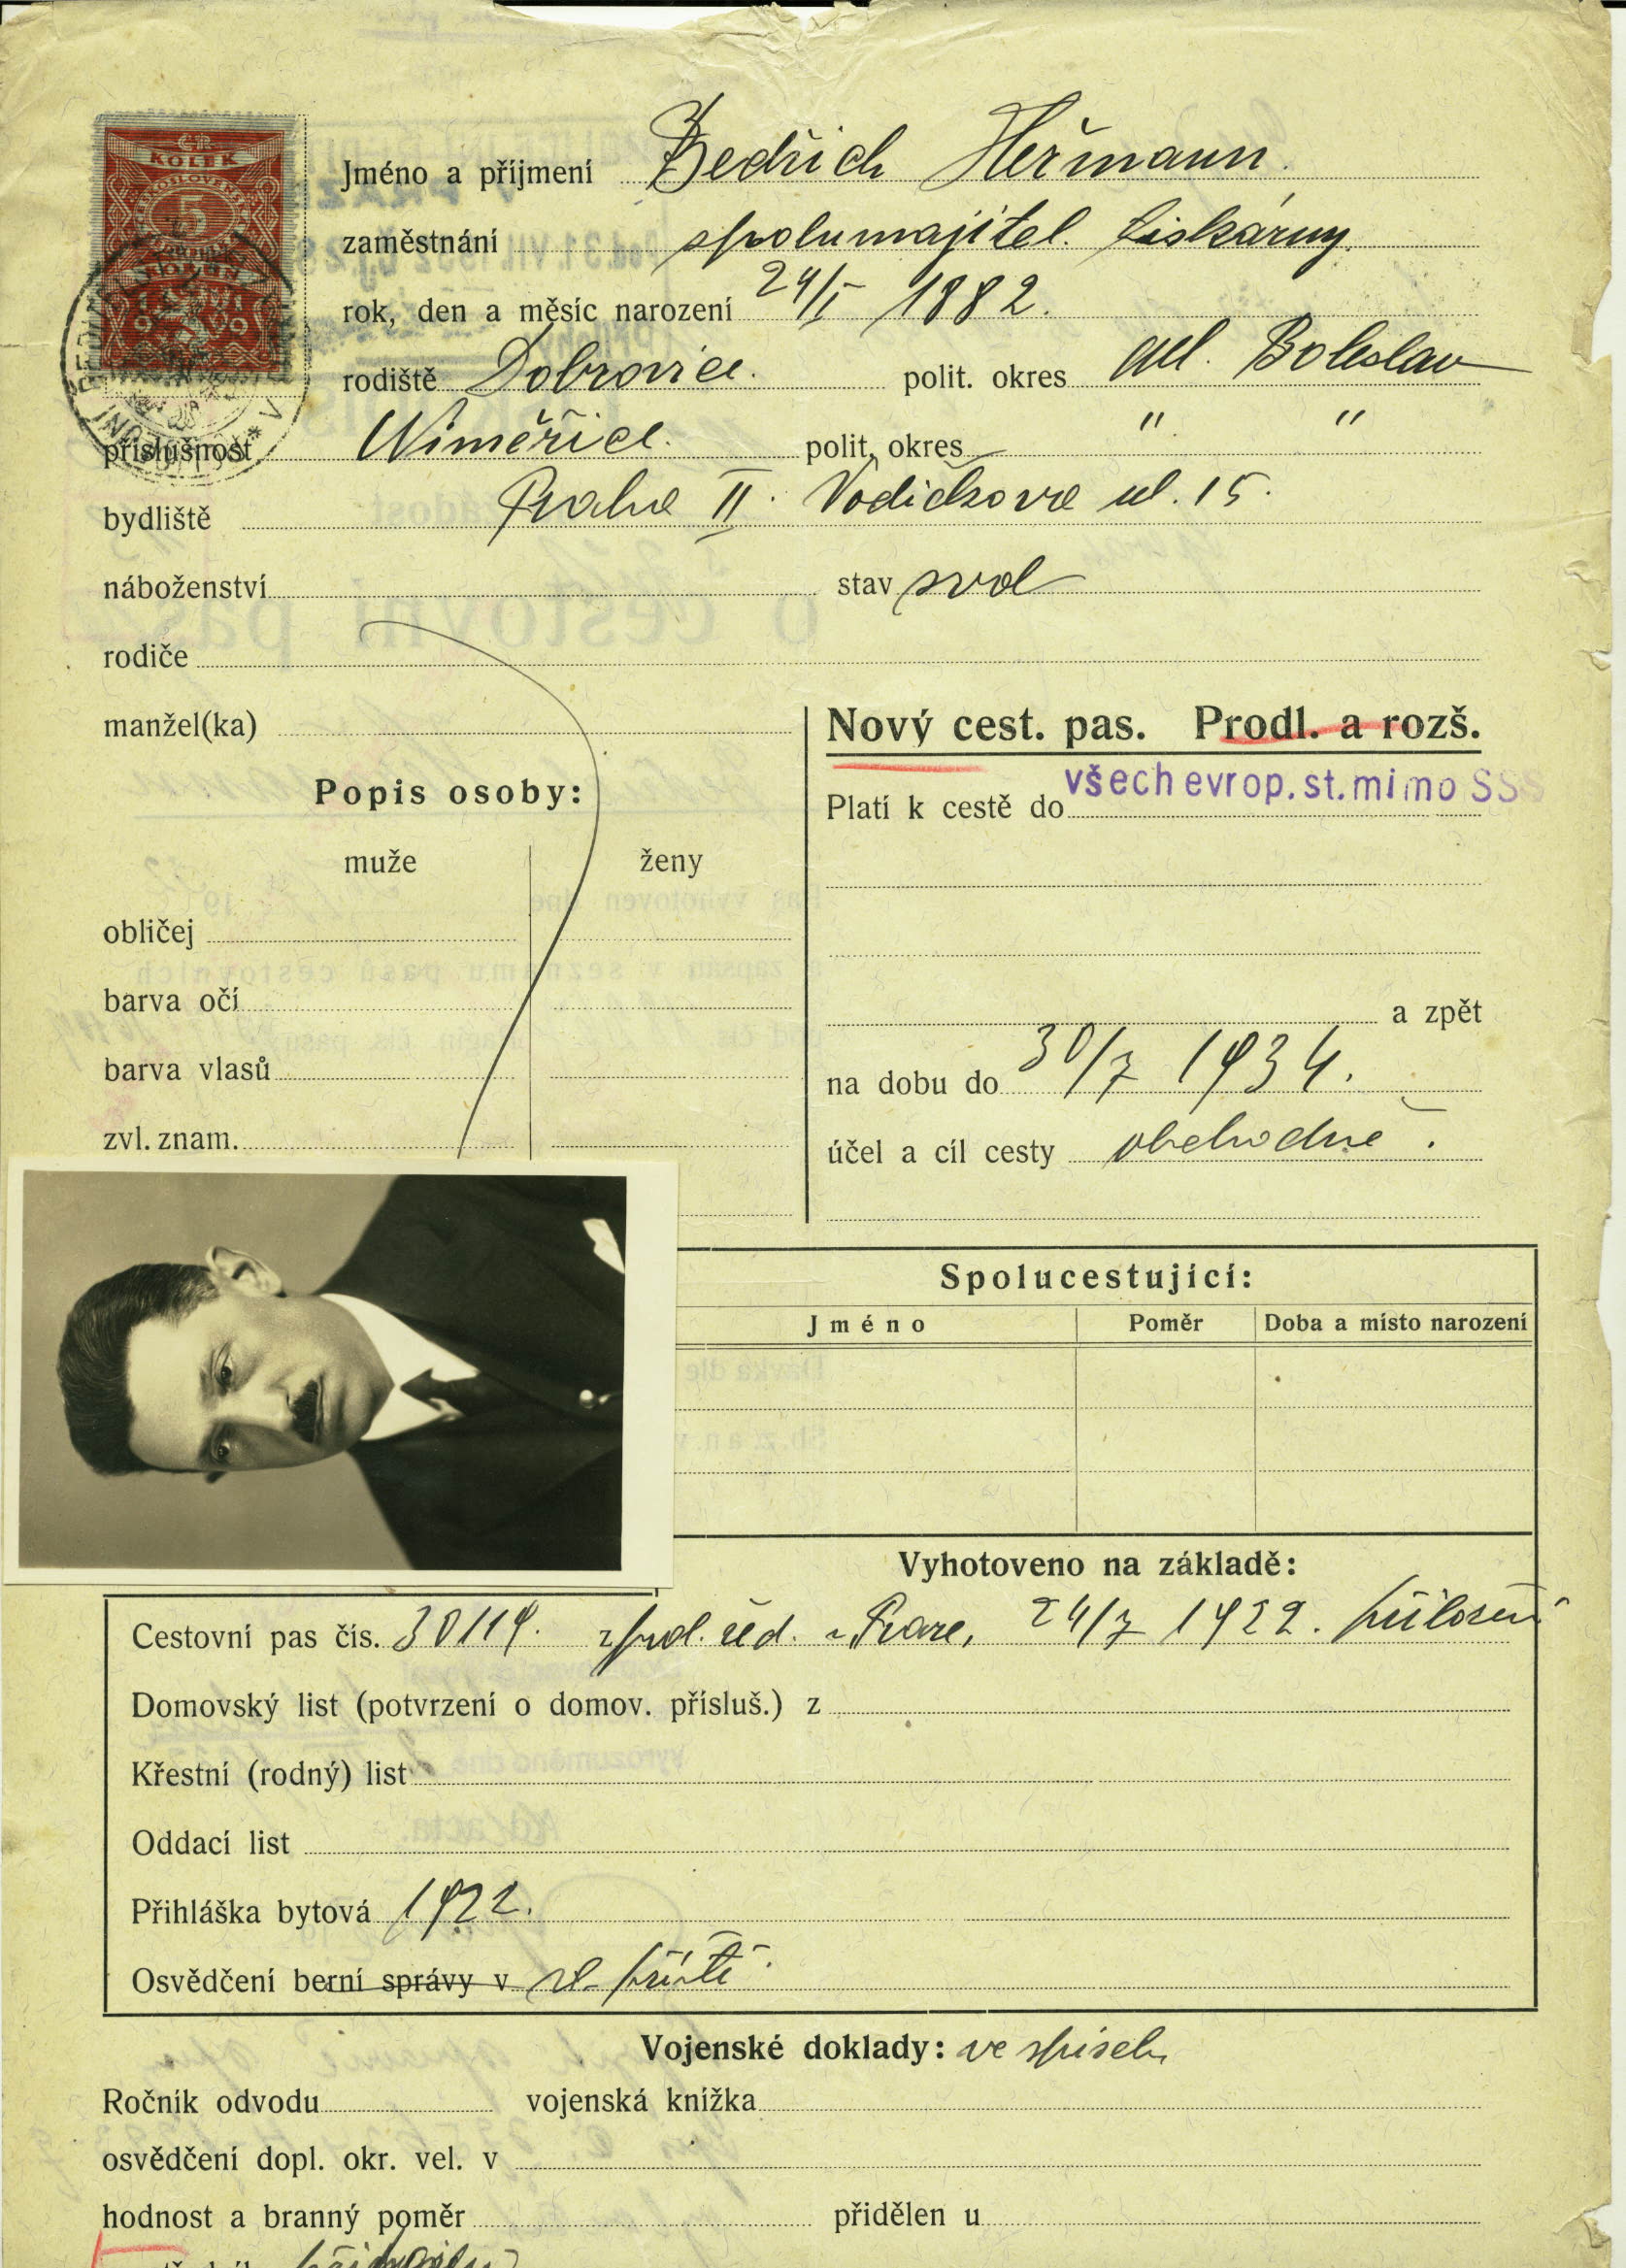 KOLEK
5
KORUN
1919
Jméno a příjmení Bedřich Heřmann.
zaměstnání spolumajitel. tiskárny.
rok, den a měsíc narození 24/I 1882.
rodiště Dobrovice. polit. okres Ml. Boleslav
příslušnost Niměřice. polit. okres " "
bydliště Praha II. Vodičkova ul. 15.
náboženství stav svob
rodiče
manžel(ka)
Nový cest. pas. Prodl. a rozš.
Popis osoby:
všech evrop. st. mimo SSS
Platí k cestě do
muže ženy
obličej
barva očí
a zpět
barva vlasů
na dobu do 30/7 1934.
zvl. znam.
účel a cíl cesty obchodně.
Spolucestující:
Jméno Poměr Doba a místo narození
Vyhotoveno na základě:
Cestovní pas čís. 30119. z pol. řed. v Praze, 24/7 1922. přiložen
Domovský list (potvrzení o domov. přísluš.) z
Křestní (rodný) list
Oddací list
Přihláška bytová 1922.
Osvědčení berní správy v
Vojenské doklady: ve spisech
Ročník odvodu vojenská knížka
osvědčení dopl. okr. vel. v
hodnost a branný poměr přidělen u